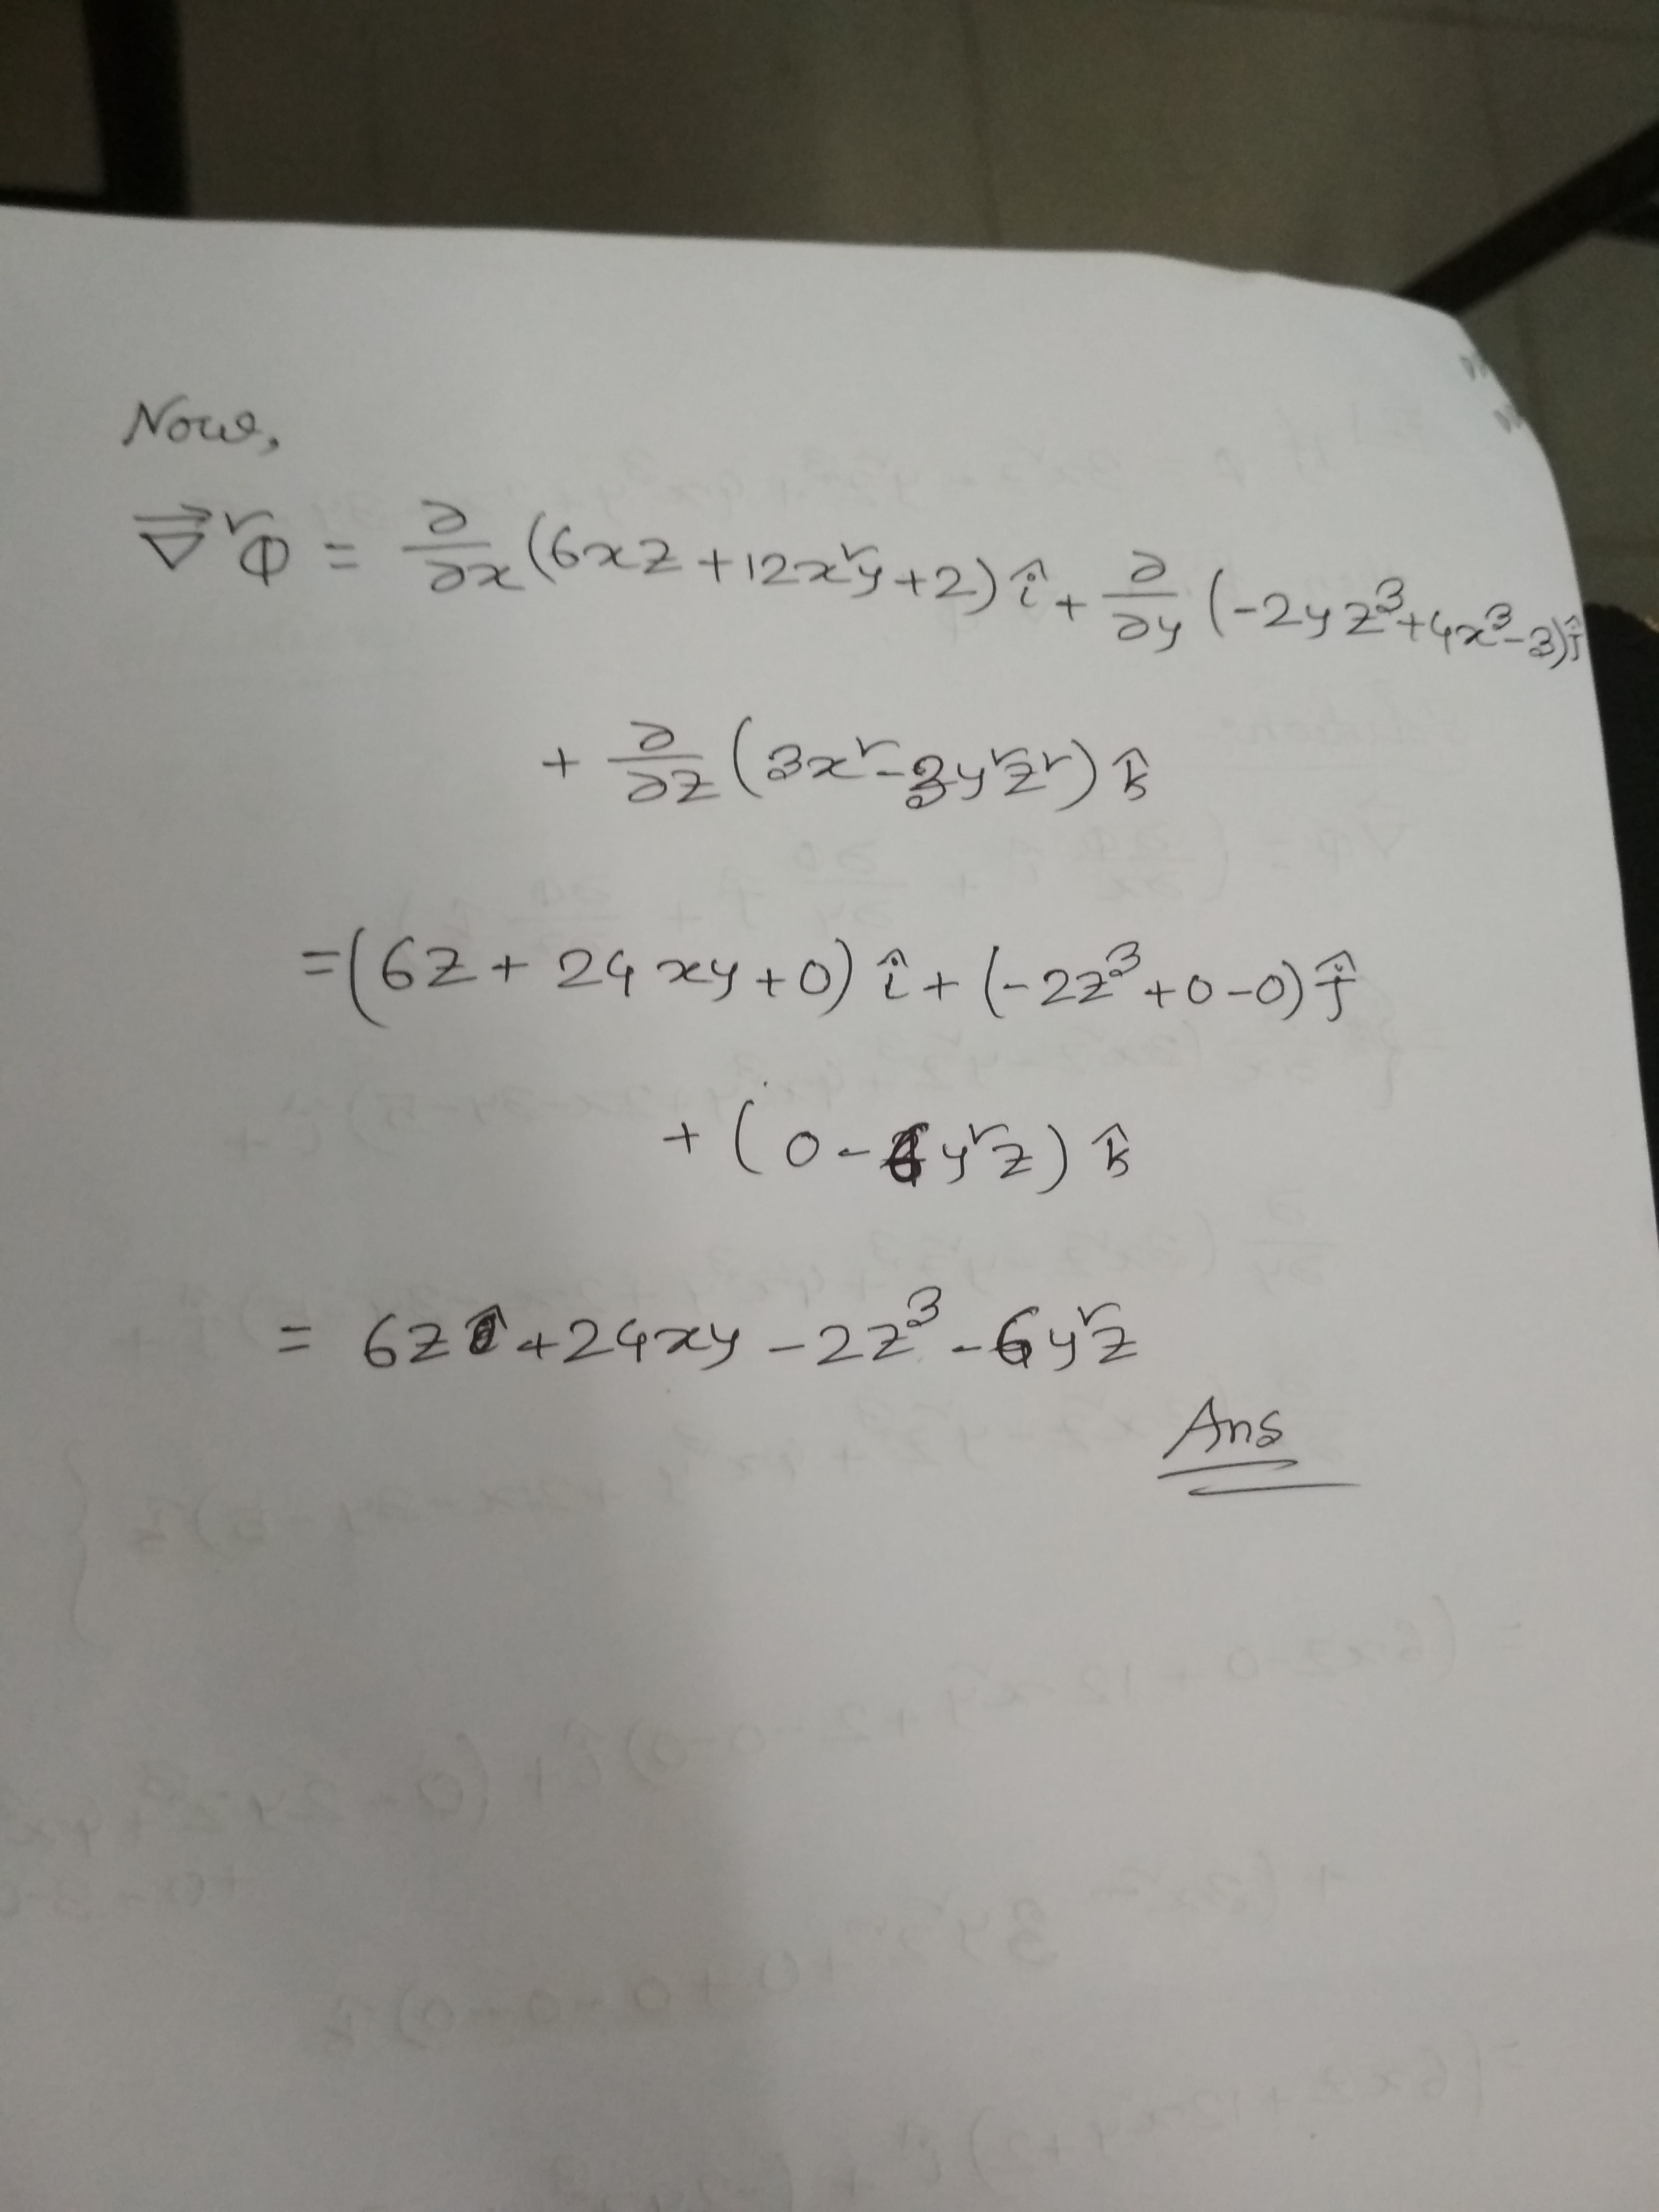 Now,
∇⃗²φ = ∂/∂x (6xz + 12x²y + 2) î + ∂/∂y (-2yz³ + 4x³ - 3) ĵ
+ ∂/∂z (3x² - 3y²z²) k̂
= (6z + 24xy + 0) î + (-2z³ + 0 - 0) ĵ
+ (0 - 6y²z) k̂
= 6z + 24xy - 2z³ - 6y²z
Ans